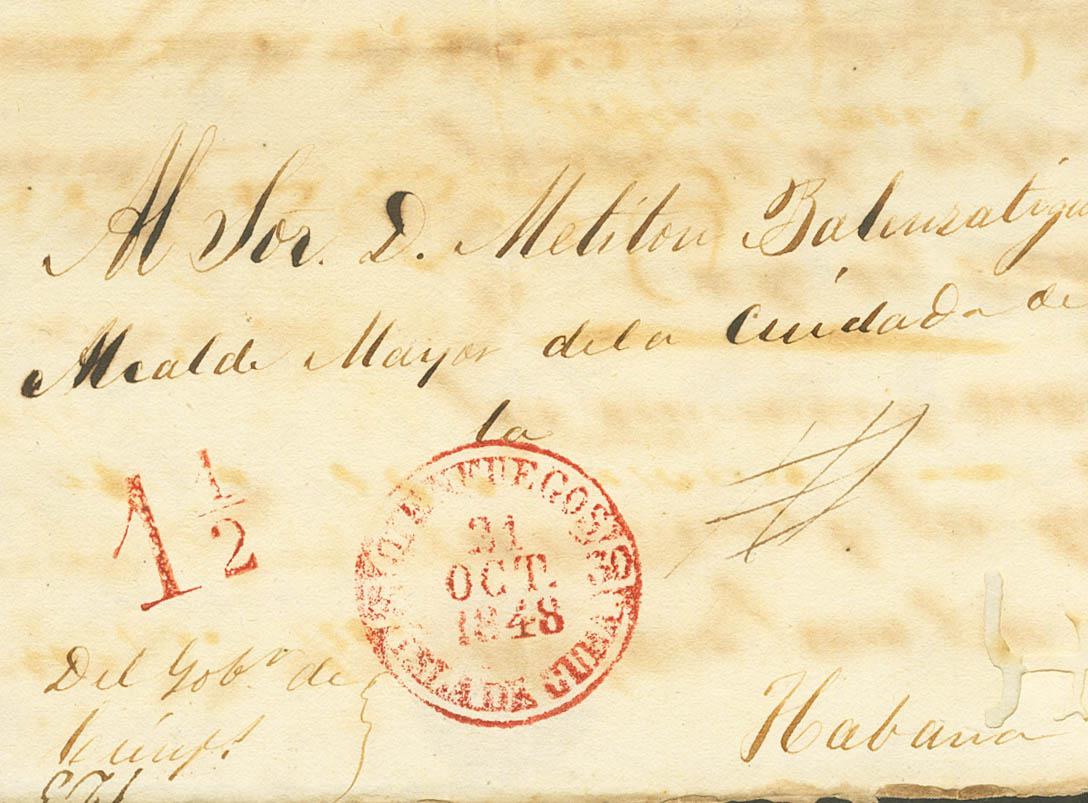 Al Sor. D. Meliton Balenzategui
Alcalde Mayor de la Cuidad de
la
1 1/2
CIENFUEGOS
31
OCT.
1848
ISLA DE CUBA
Del Gobor de
Habana